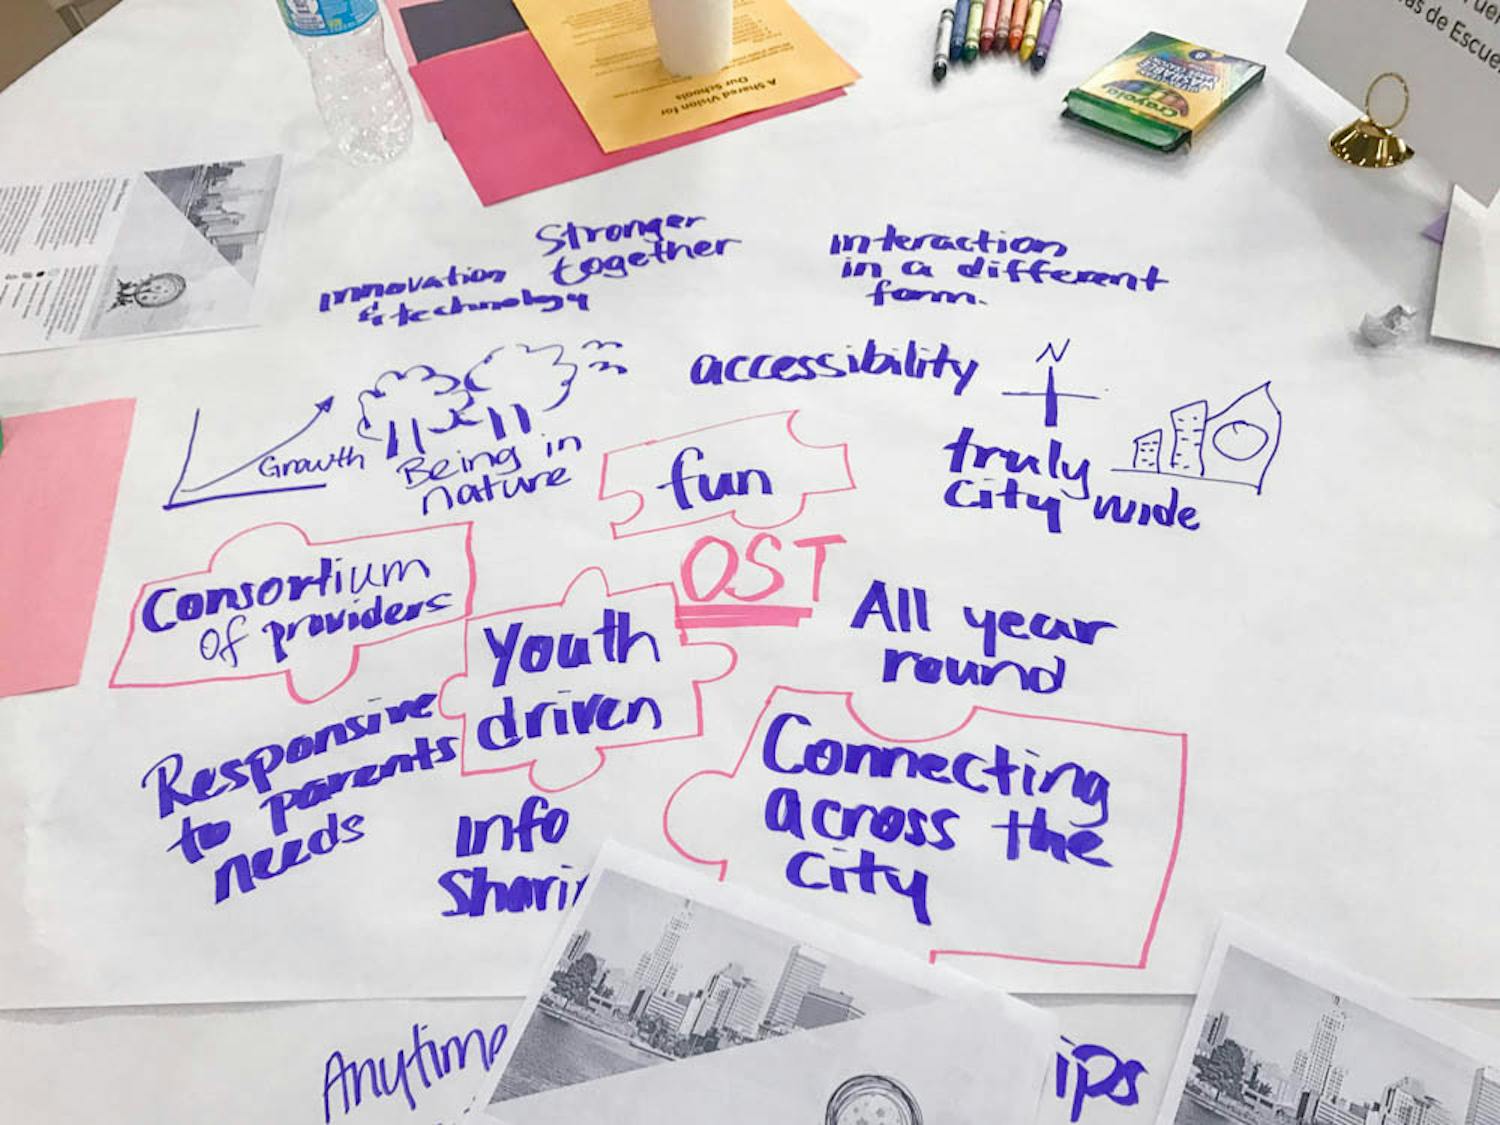 A Shared Vision for
Our Schools
Crayola
WASHABLE
8
as de Escue
Stronger
together
Innovation
& technology
interaction
in a different
form.
accessibility
N
Growth
Being in
nature
fun
truly
city wide
OST
Consortium
of providers
Youth
driven
All year
round
Responsive
to parents
needs
Info
Shari
Connecting
across the
city
Anytime
ips